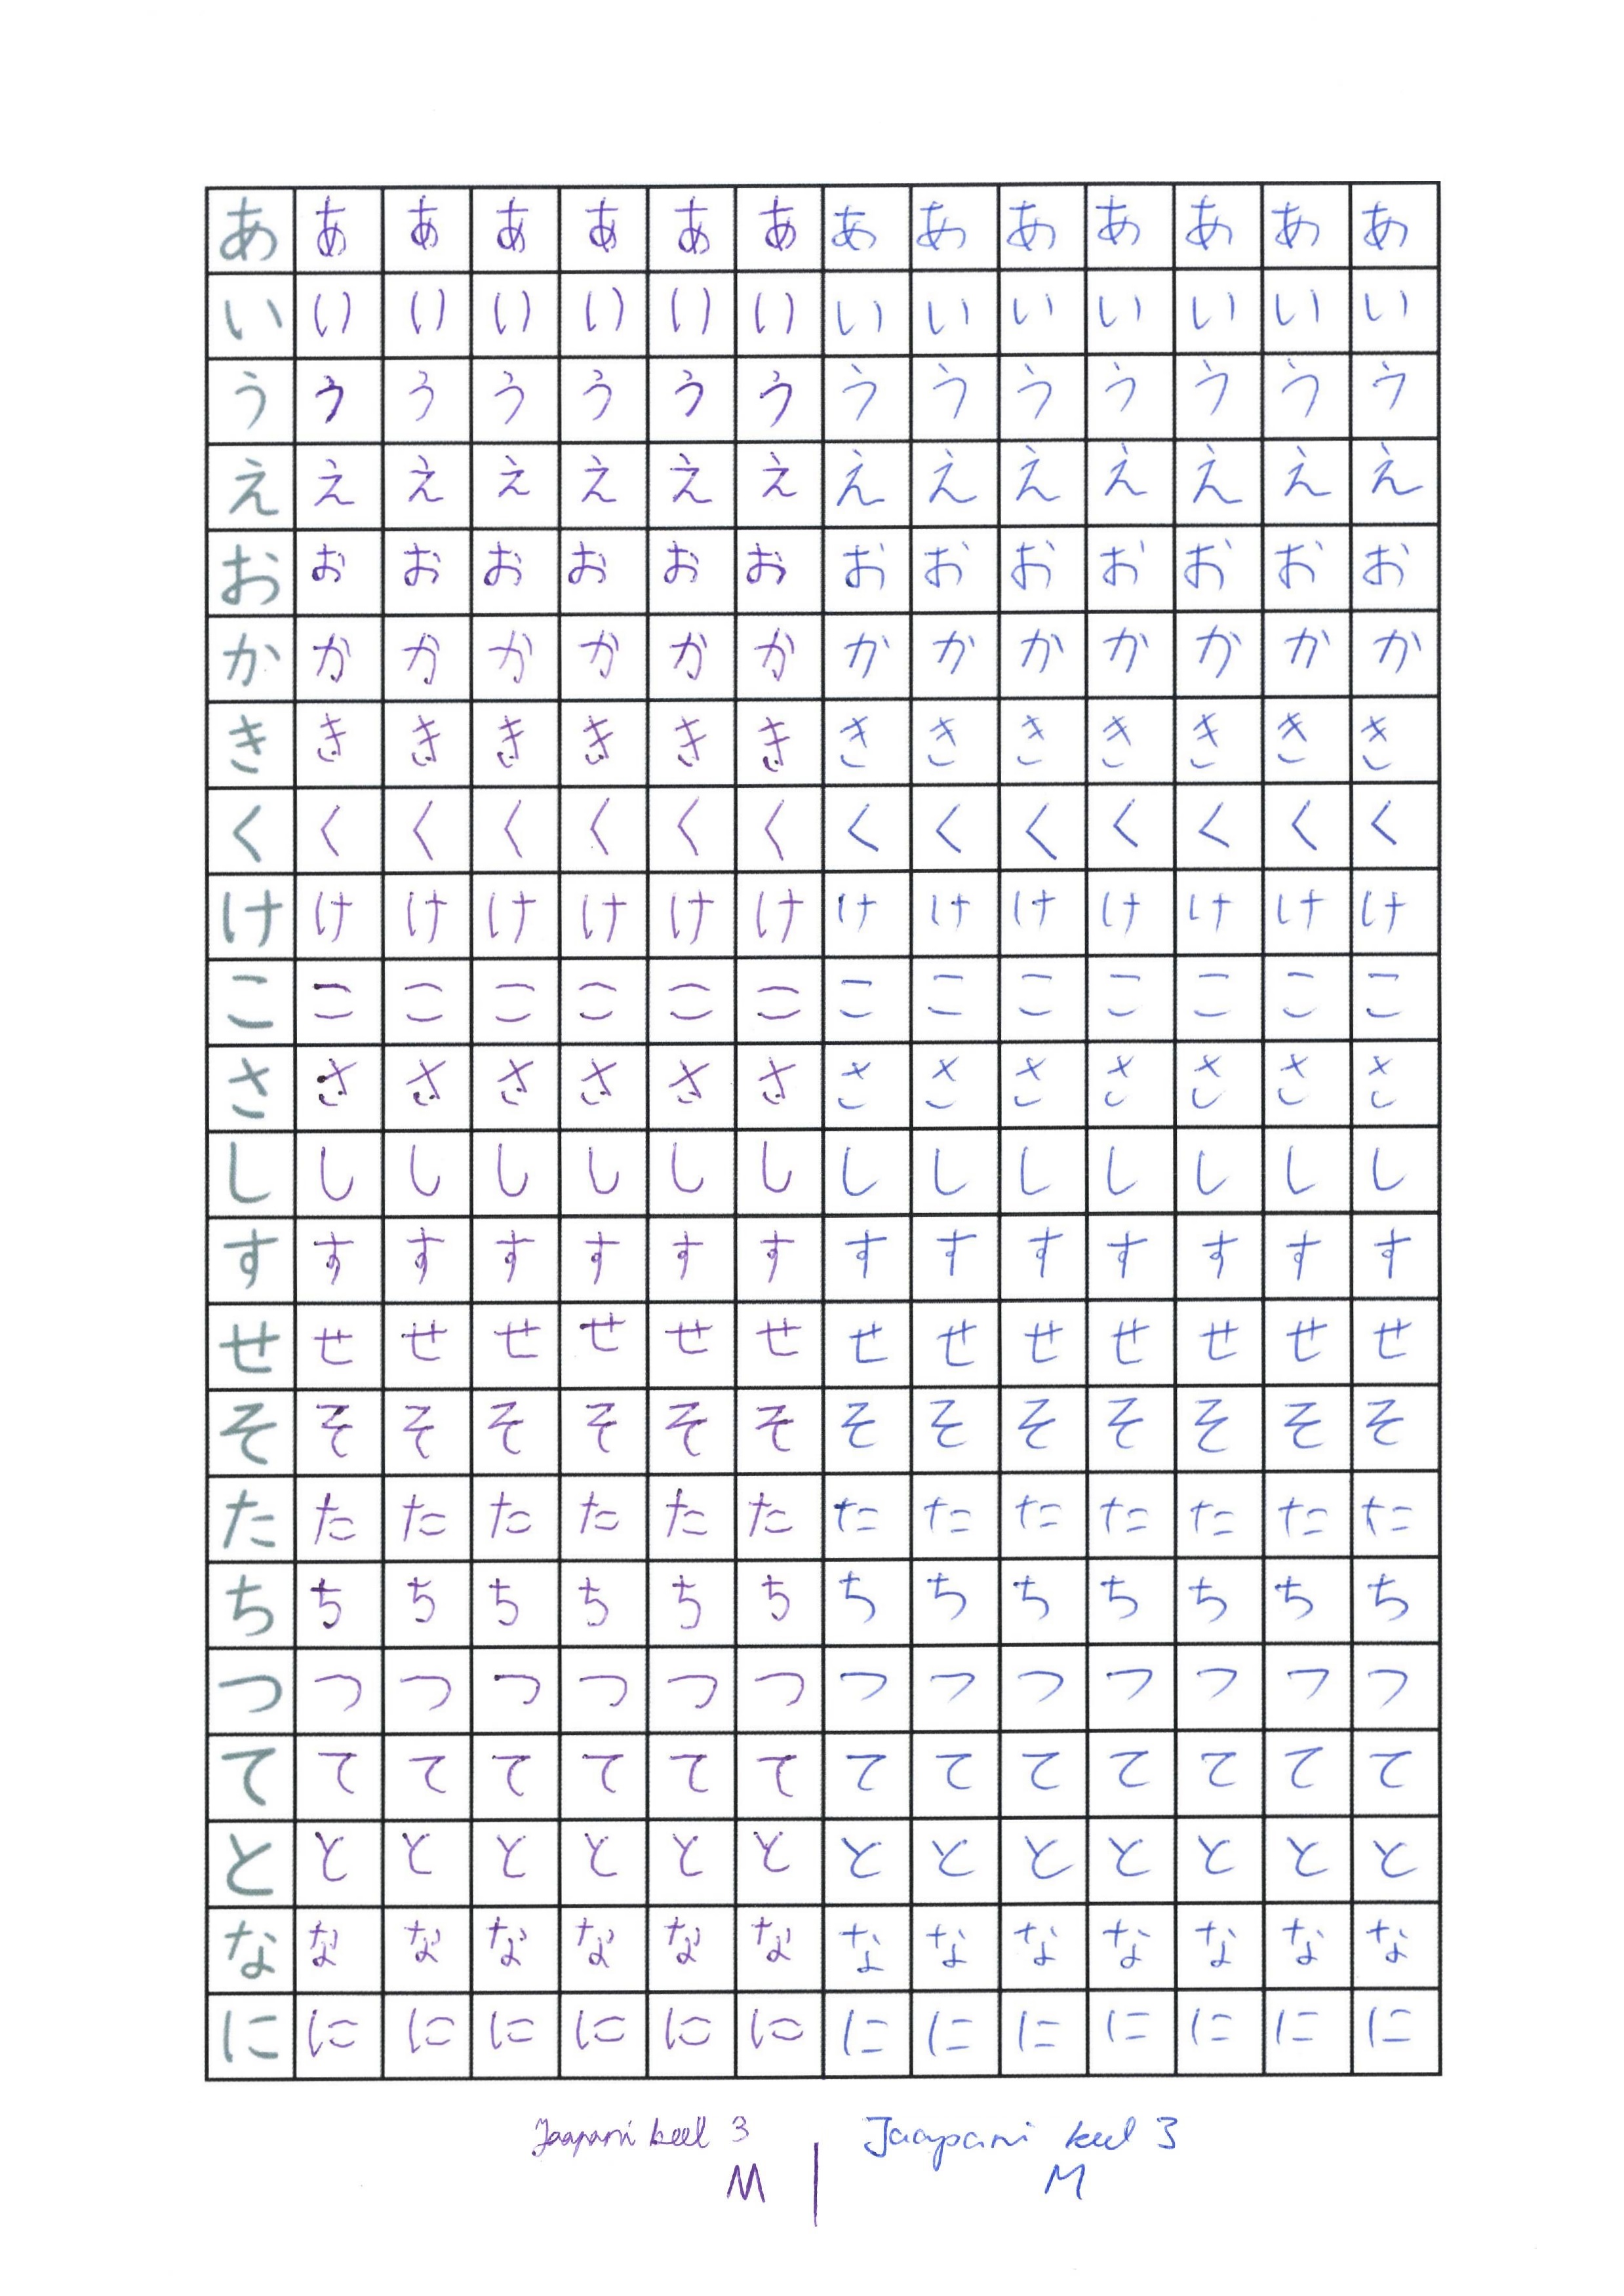 あ あ あ あ あ あ あ あ あ あ あ あ あ あ
い い い い い い い い い い い い い い
う う う う う う う う う う う う う う
え え え え え え え え え え え え え え
お お お お お お お お お お お お お お
か か か か か か か か か か か か か か
き き き き き き き き き き き き き き
く く く く く く く く く く く く く く
け け け け け け け け け け け け け け
こ こ こ こ こ こ こ こ こ こ こ こ こ こ
さ さ さ さ さ さ さ さ さ さ さ さ さ さ
し し し し し し し し し し し し し し
す す す す す す す す す す す す す す
せ せ せ せ せ せ せ せ せ せ せ せ せ せ
そ そ そ そ そ そ そ そ そ そ そ そ そ そ
た た た た た た た た た た た た た た
ち ち ち ち ち ち ち ち ち ち ち ち ち ち
つ つ つ つ つ つ つ つ つ つ つ つ つ つ
て て て て て て て て て て て て て て
と と と と と と と と と と と と と と
な な な な な な な な な な な な な な
に に に に に に に に に に に に に に
Jaapani keel 3 Jaapani keel 3
M M